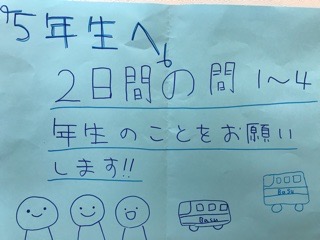 5年生へ
2日間の間1〜4
年生のことをお願い
します!!
Basu
Basu